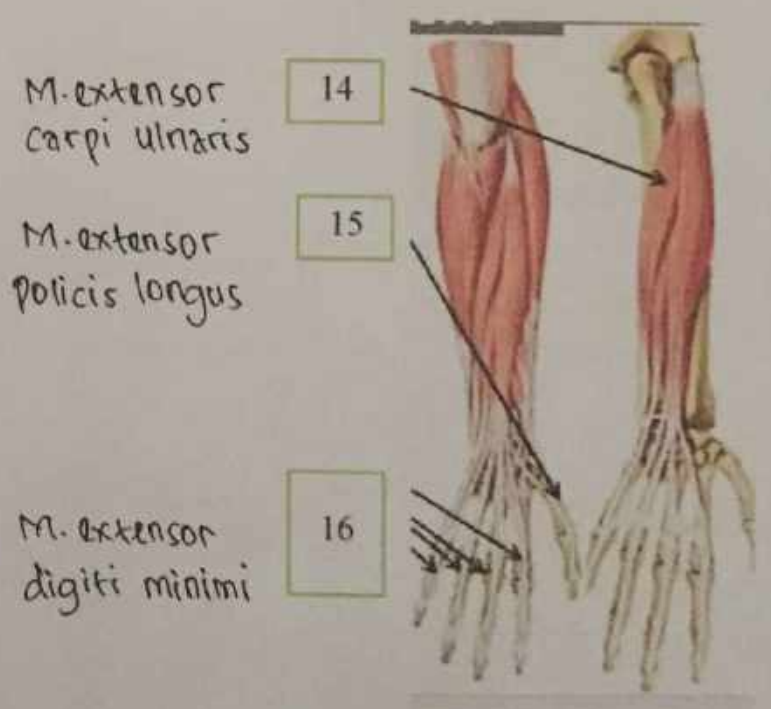 M. extensor
carpi ulnaris
14
M. extensor
policis longus
15
M. extensor
digiti minimi
16